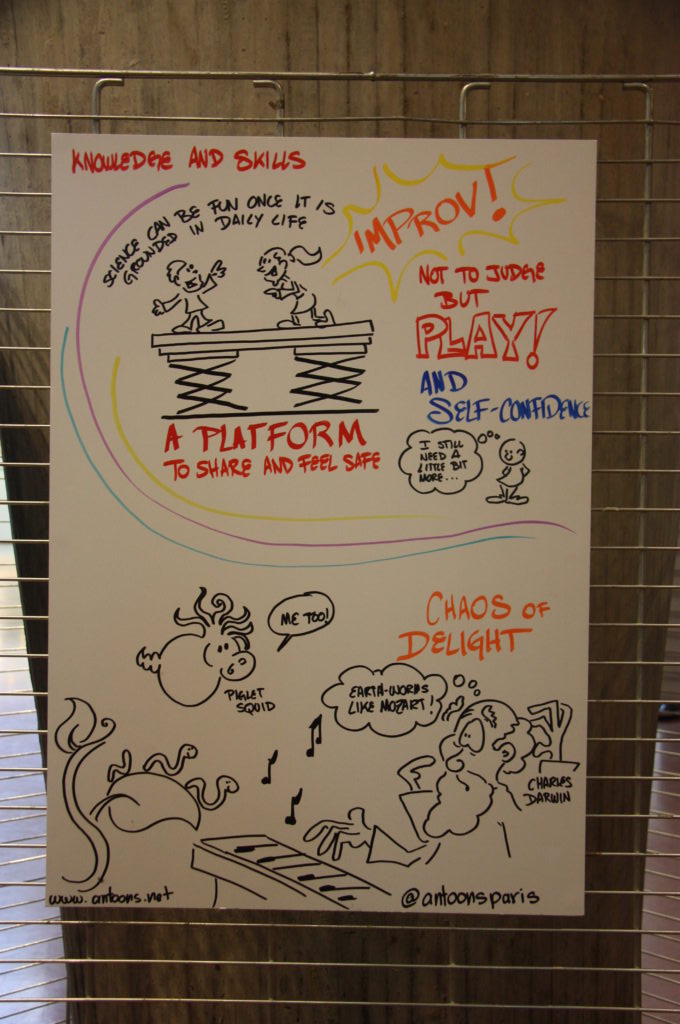 KNOWLEDGE AND SKILLS
SCIENCE CAN BE FUN ONCE IT IS
GROUNDED IN DAILY LIFE
IMPROV!
NOT TO JUDGE
BUT
PLAY!
AND
SELF-CONFIDENCE
I STILL
NEED A
LITTLE BIT
MORE...
A PLATFORM
TO SHARE AND FEEL SAFE
ME TOO!
PIGLET
SQUID
CHAOS OF
DELIGHT
EARTH-WORMS
LIKE MOZART!
CHARLES
DARWIN
www.antoons.net
@antoonsparis